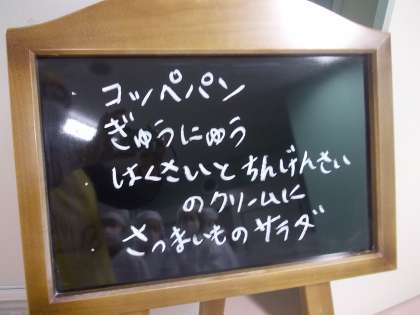 コッペパン
ぎゅうにゅう
はくさいとちんげんさい
のクリームに
さつまいものサラダ